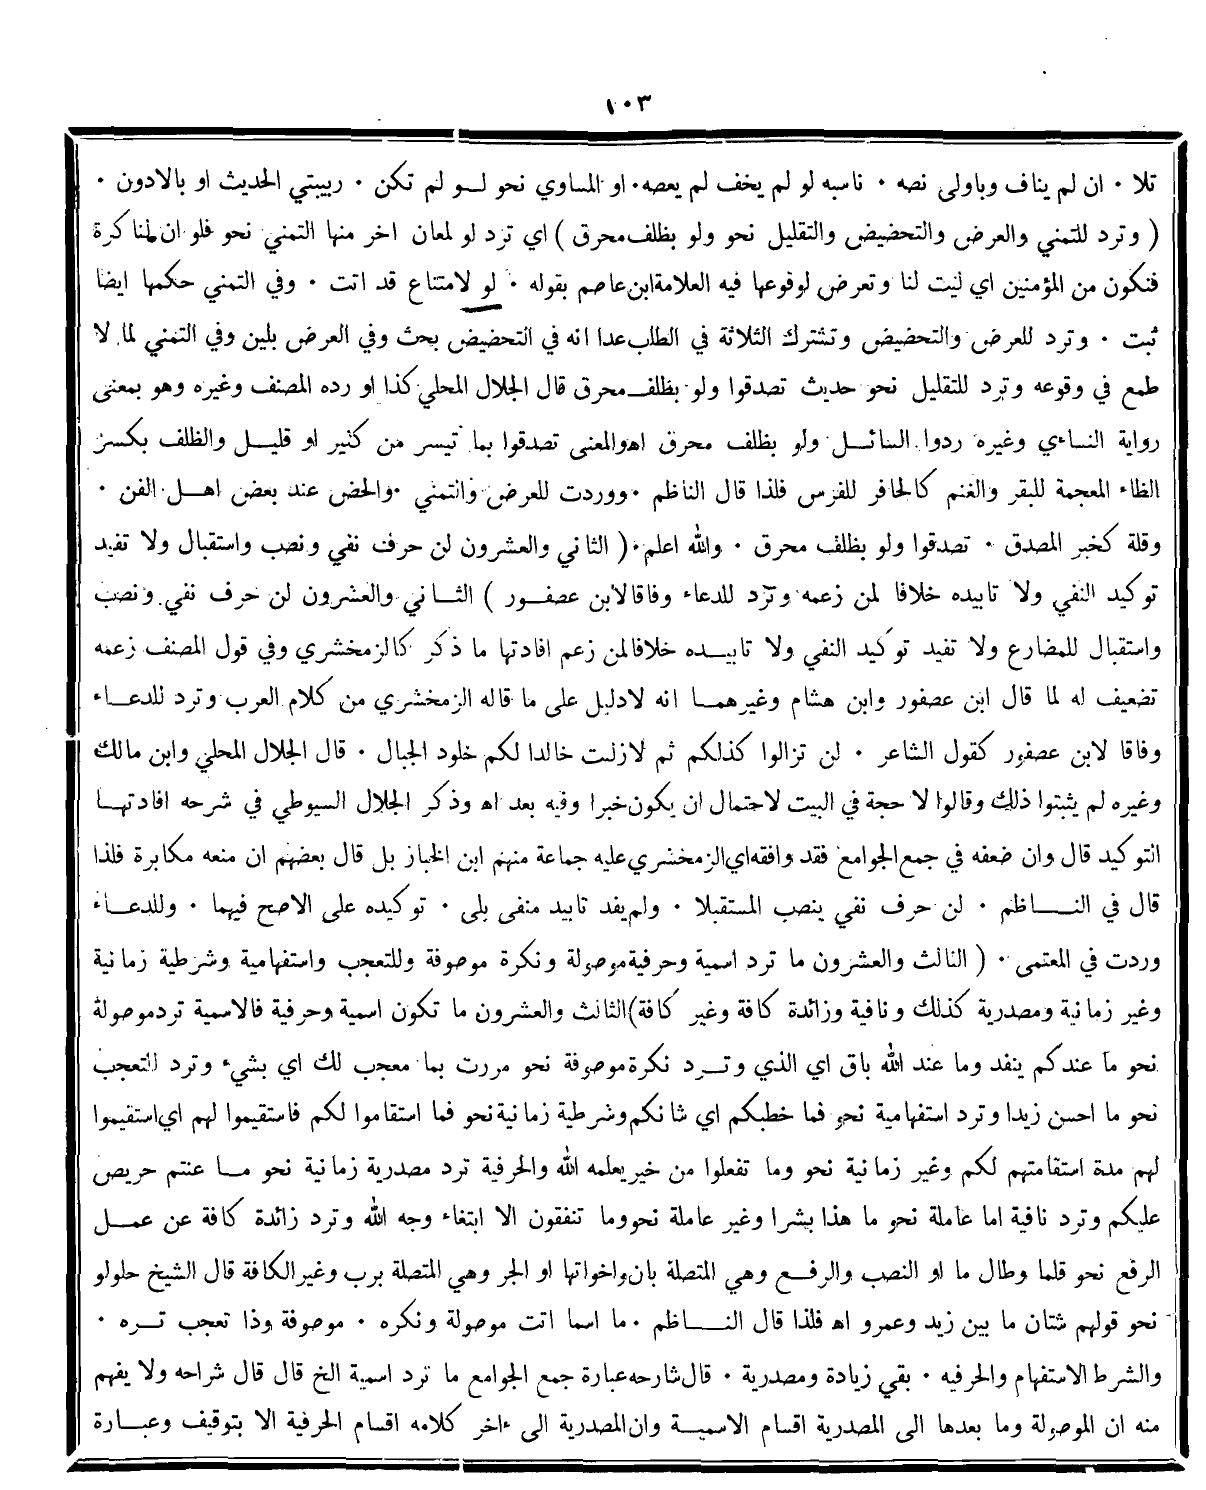 ١٠٣
تلا · ان لم يناف وباولى نصه · ناسبه لو لم يخف لم يعصه · او المساوي نحو لو لم تكن · ربيبتي الحديث او بالادون ·
( وترد للتمني والعرض والتحضيض والتقليل نحو ولو بظلف محرق ) اي ترد لو لمعان اخر منها التمني نحو فلو ان لنا كرة
فنكون من المؤمنين اي ليت لنا وتعرض لوقوعها فيه العلامة ابن عاصم بقوله · لو لامتناع قد اتت · وفي التمني حكمها ايضا
ثبت · وترد للعرض والتحضيض وتشترك الثلاثة في الطلب عدا انه في التحضيض بحث وفي العرض بلين وفي التمني لما لا
طمع في وقوعه وترد للتقليل نحو حديث تصدقوا ولو بظلف محرق قال الجلال المحلي كذا او رده المصنف وغيره وهو بمعنى
رواية النساءي وغيره ردوا السائل ولو بظلف محرق اه والمعنى تصدقوا بما تيسر من كثير او قليل والظلف بكسر
الظاء المعجمة للبقر والغنم كالحافر للفرس فلذا قال الناظم · ووردت للعرض والتمني · والحض عند بعض اهل الفن ·
وقلة كخبر المصدق · تصدقوا ولو بظلف محرق · والله اعلم · ( الثاني والعشرون لن حرف نفي ونصب واستقبال ولا تفيد
توكيد النفي ولا تابيده خلافا لمن زعمه وترد للدعاء وفاقا لابن عصفور ) الثاني والعشرون لن حرف نفي ونصب
واستقبال للمضارع ولا تفيد توكيد النفي ولا تابيده خلافا لمن زعم افادتها ما ذكر كالزمخشري وفي قول المصنف زعمه
تضعيف له لما قال ابن عصفور وابن هشام وغيرهما انه لا دليل على ما قاله الزمخشري من كلام العرب وترد للدعاء
وفاقا لابن عصفور كقول الشاعر · لن تزالوا كذلكم ثم لا زلت خالدا لكم خلود الجبال · قال الجلال المحلي وابن مالك
وغيره لم يثبتوا ذلك وقالوا لا حجة في البيت لاحتمال ان يكون خبرا وفيه بعد اه وذكر الجلال السيوطي في شرحه افادتها
التوكيد قال وان ضعفه في جمع الجوامع فقد وافقه اي الزمخشري عليه جماعة منهم ابن الخباز بل قال بعضهم ان منعه مكابرة فلذا
قال في الناظم · لن حرف نفي ينصب المستقبلا · ولم يفد تابيد منفى بلى · توكيده على الاصح فيهما · وللدعاء
وردت في المعتمى · ( الثالث والعشرون ما ترد اسمية وحرفية موصولة ونكرة موصوفة وللتعجب واستفهامية وشرطية زمانية
وغير زمانية ومصدرية كذلك ونافية وزائدة كافة وغير كافة ) الثالث والعشرون ما تكون اسمية وحرفية فالاسمية ترد موصولة
نحو ما عندكم ينفد وما عند الله باق اي الذي وترد نكرة موصوفة نحو مررت بما معجب لك اي بشيء وترد للتعجب
نحو ما احسن زيدا وترد استفهامية نحو فما خطبكم اي شانكم وشرطية زمانية نحو فما استقاموا لكم فاستقيموا لهم اي استقيموا
لهم مدة استقامتهم لكم وغير زمانية نحو وما تفعلوا من خير يعلمه الله والحرفية ترد مصدرية زمانية نحو ما عنتم حريص
عليكم وترد نافية اما عاملة نحو ما هذا بشرا وغير عاملة نحو وما تنفقون الا ابتغاء وجه الله وترد زائدة كافة عن عمل
الرفع نحو قلما وطال ما او النصب والرفع وهي المتصلة بان واخواتها او الجر وهي المتصلة برب وغير الكافة قال الشيخ حلولو
نحو قولهم شتان ما بين زيد وعمرو اه فلذا قال الناظم · ما اسما اتت موصولة ونكره · موصوفة وذا تعجب تره ·
والشرط الاستفهام والحرفيه · بقي زيادة ومصدرية · قال شارحه عبارة جمع الجوامع ما ترد اسمية الخ قال قال شراحه ولا يفهم
منه ان الموصولة وما بعدها الى المصدرية اقسام الاسمية وان المصدرية الى ءاخر كلامه اقسام الحرفية الا بتوقيف وعبارة